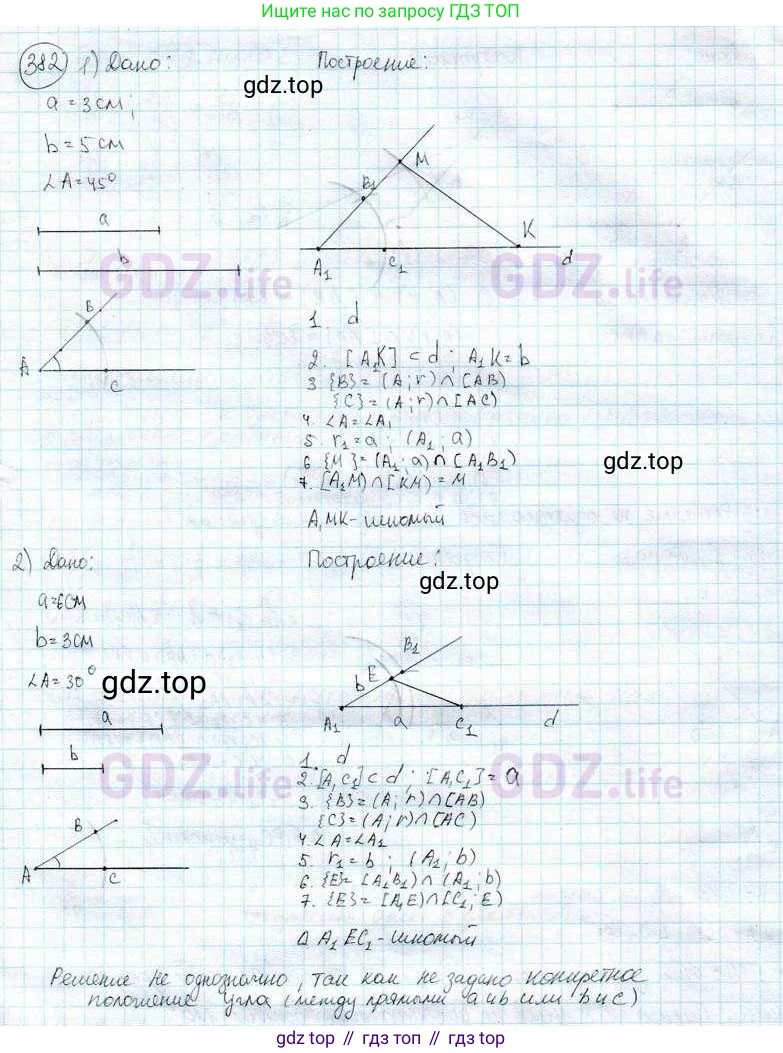 Ищите нас по запросу ГДЗ ТОП
382 1) Дано:
Построение:
gdz.top
a = 3 см;
b = 5 см
∠A = 45°
a
b
M
B₁
K
A₁
C₁
d
GDZ.life
GDZ.life
B
A
C
1. d
2. [A₁K] ⊂ d ; A₁K = b
3 {B} = (A; r) ∩ [AB)
{C} = (A; r) ∩ [AC)
4. ∠A = ∠A₁
5. r₁ = a ; (A₁; a)
6 {M} = (A₁; a) ∩ [A₁B₁)
7. [A₁M) ∩ [KM) = M
gdz.top
A₁MK - искомый
2) Дано:
Построение:
gdz.top
a = 6 см
b = 3 см
∠A = 30°
gdz.top
a
b
B₁
E
b
A₁
a
C₁
d
GDZ.life
GDZ.life
B
A
C
1. d
2. [A₁C₁] ⊂ d ; [A₁C₁] = a
3. {B} = (A; r) ∩ [AB)
{C} = (A; r) ∩ [AC)
4. ∠A = ∠A₁
5. r₁ = b ; (A₁; b)
6. {E} = [A₁B₁) ∩ (A₁; b)
7. {E} = [A₁E) ∩ [C₁; E)
Δ A₁EC₁ - искомый
Решение не однозначно, так как не задано конкретное
положение угла (между прямыми a и b или b и c)
gdz.top // гдз.топ // gdz.top